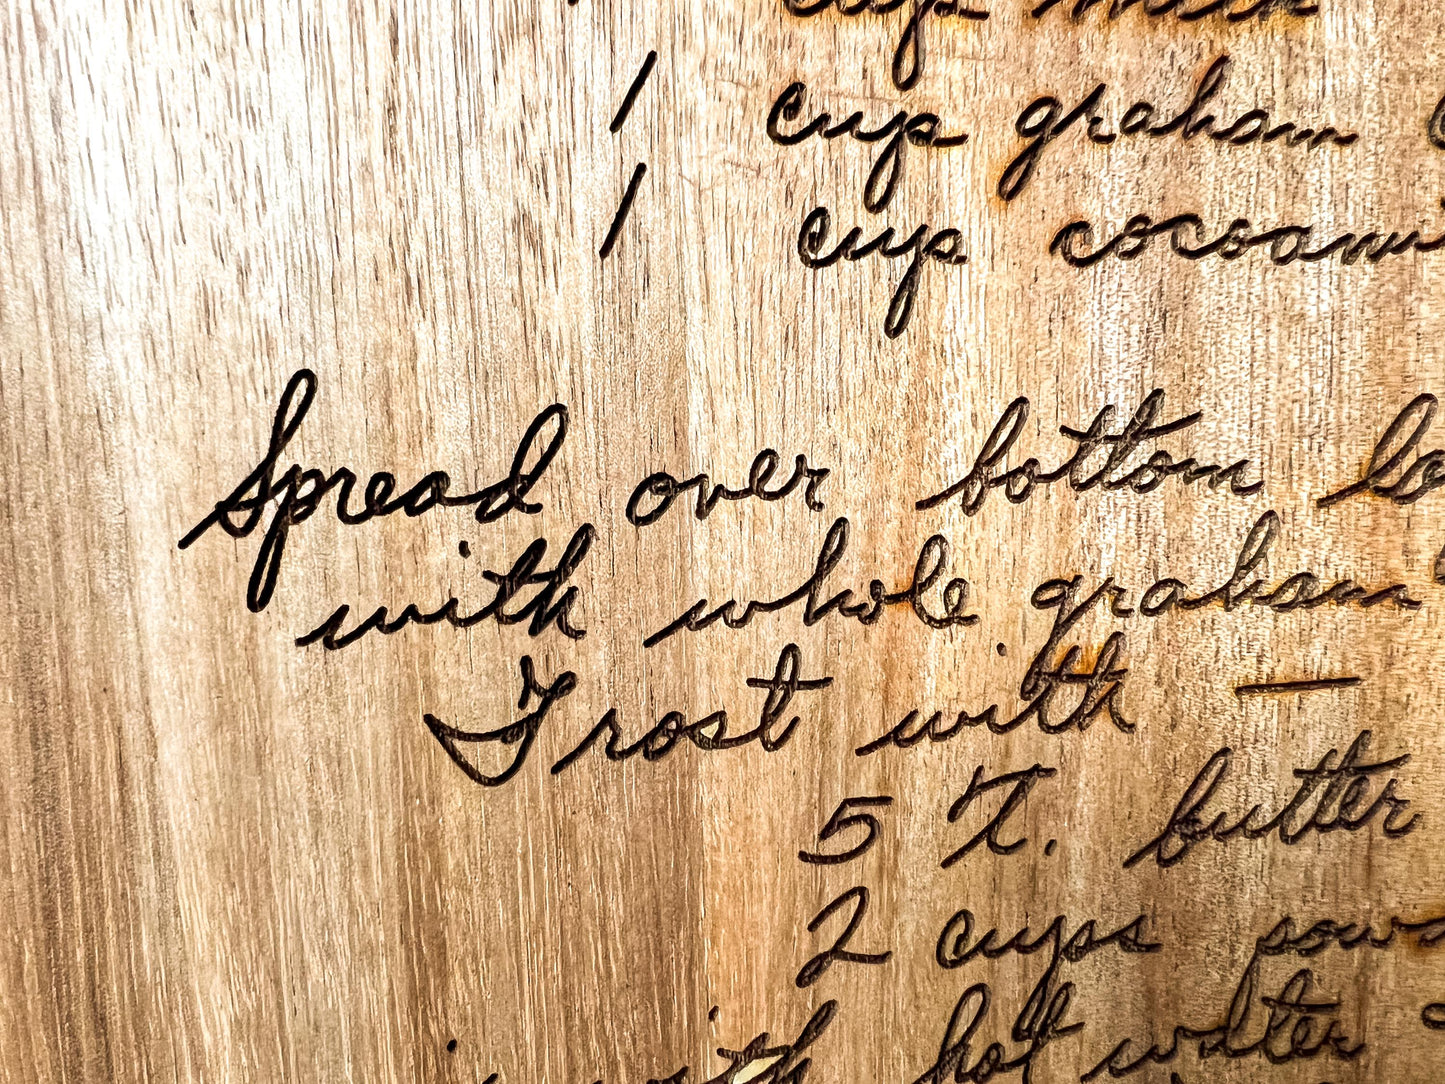 cup milk
1 cup graham
1 cup cocoanu
Spread over bottom
with whole graham
Frost with —
5 T. butter
2 cups powd
with hot water